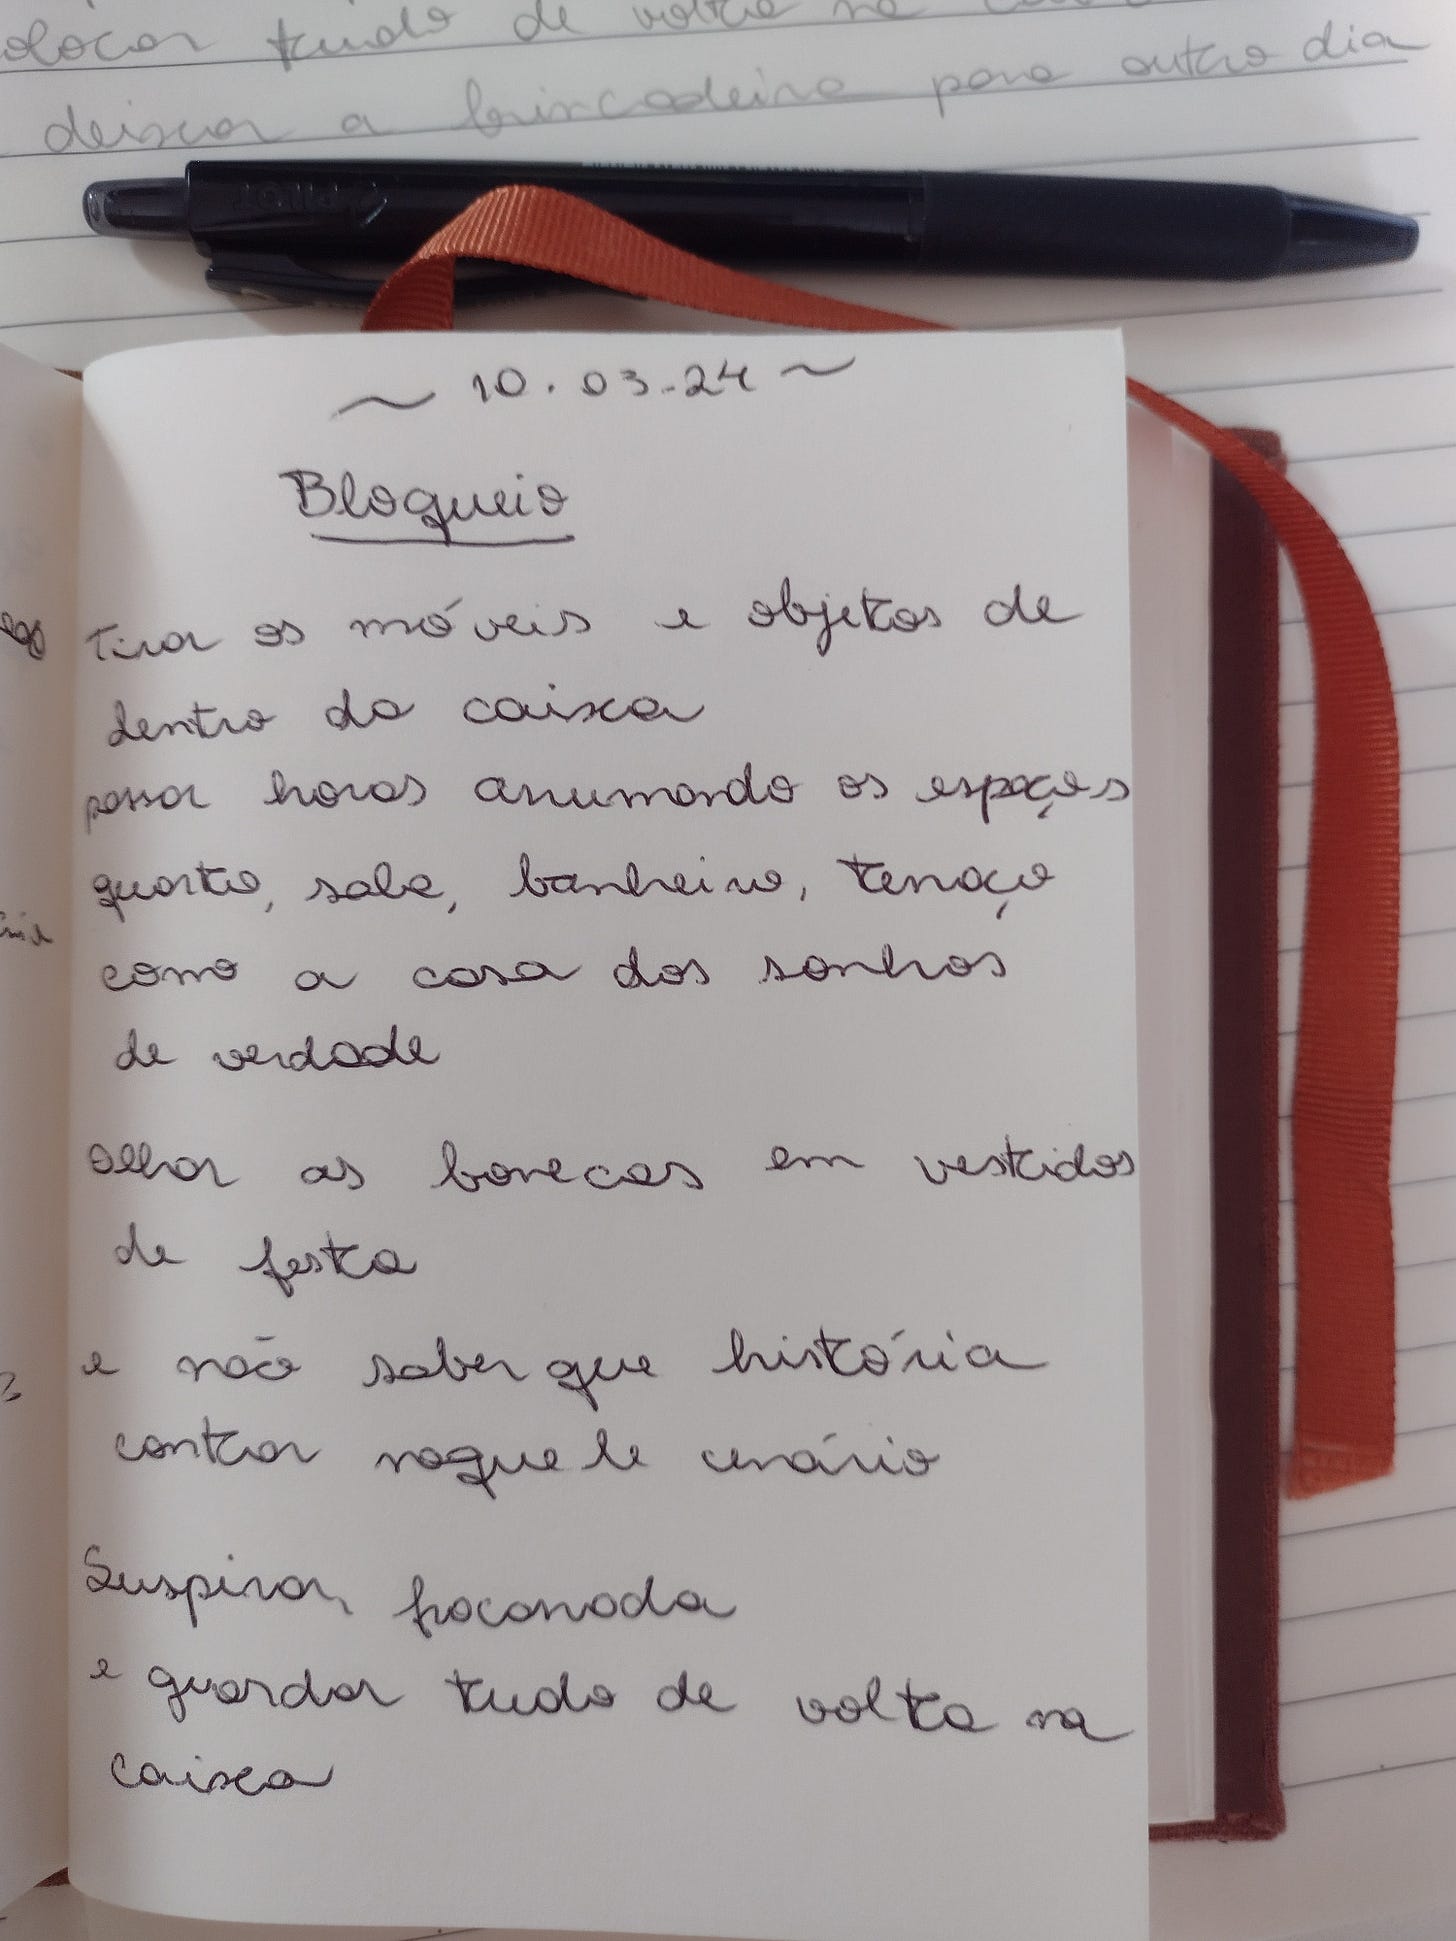 tudo de volta na
deixar a brincadeira para outro dia
PILOT
~ 10.03.24 ~
Bloqueio
Tirar os móveis e objetos de
dentro da caixa
passar horas arrumando os espaços
quarto, sala, banheiro, terraço
como a casa dos sonhos
de verdade
Olhar as bonecas em vestidos
de festa
e não saber que história
contar naquele cenário
Suspirar, fracassada
e guardar tudo de volta na
caixa